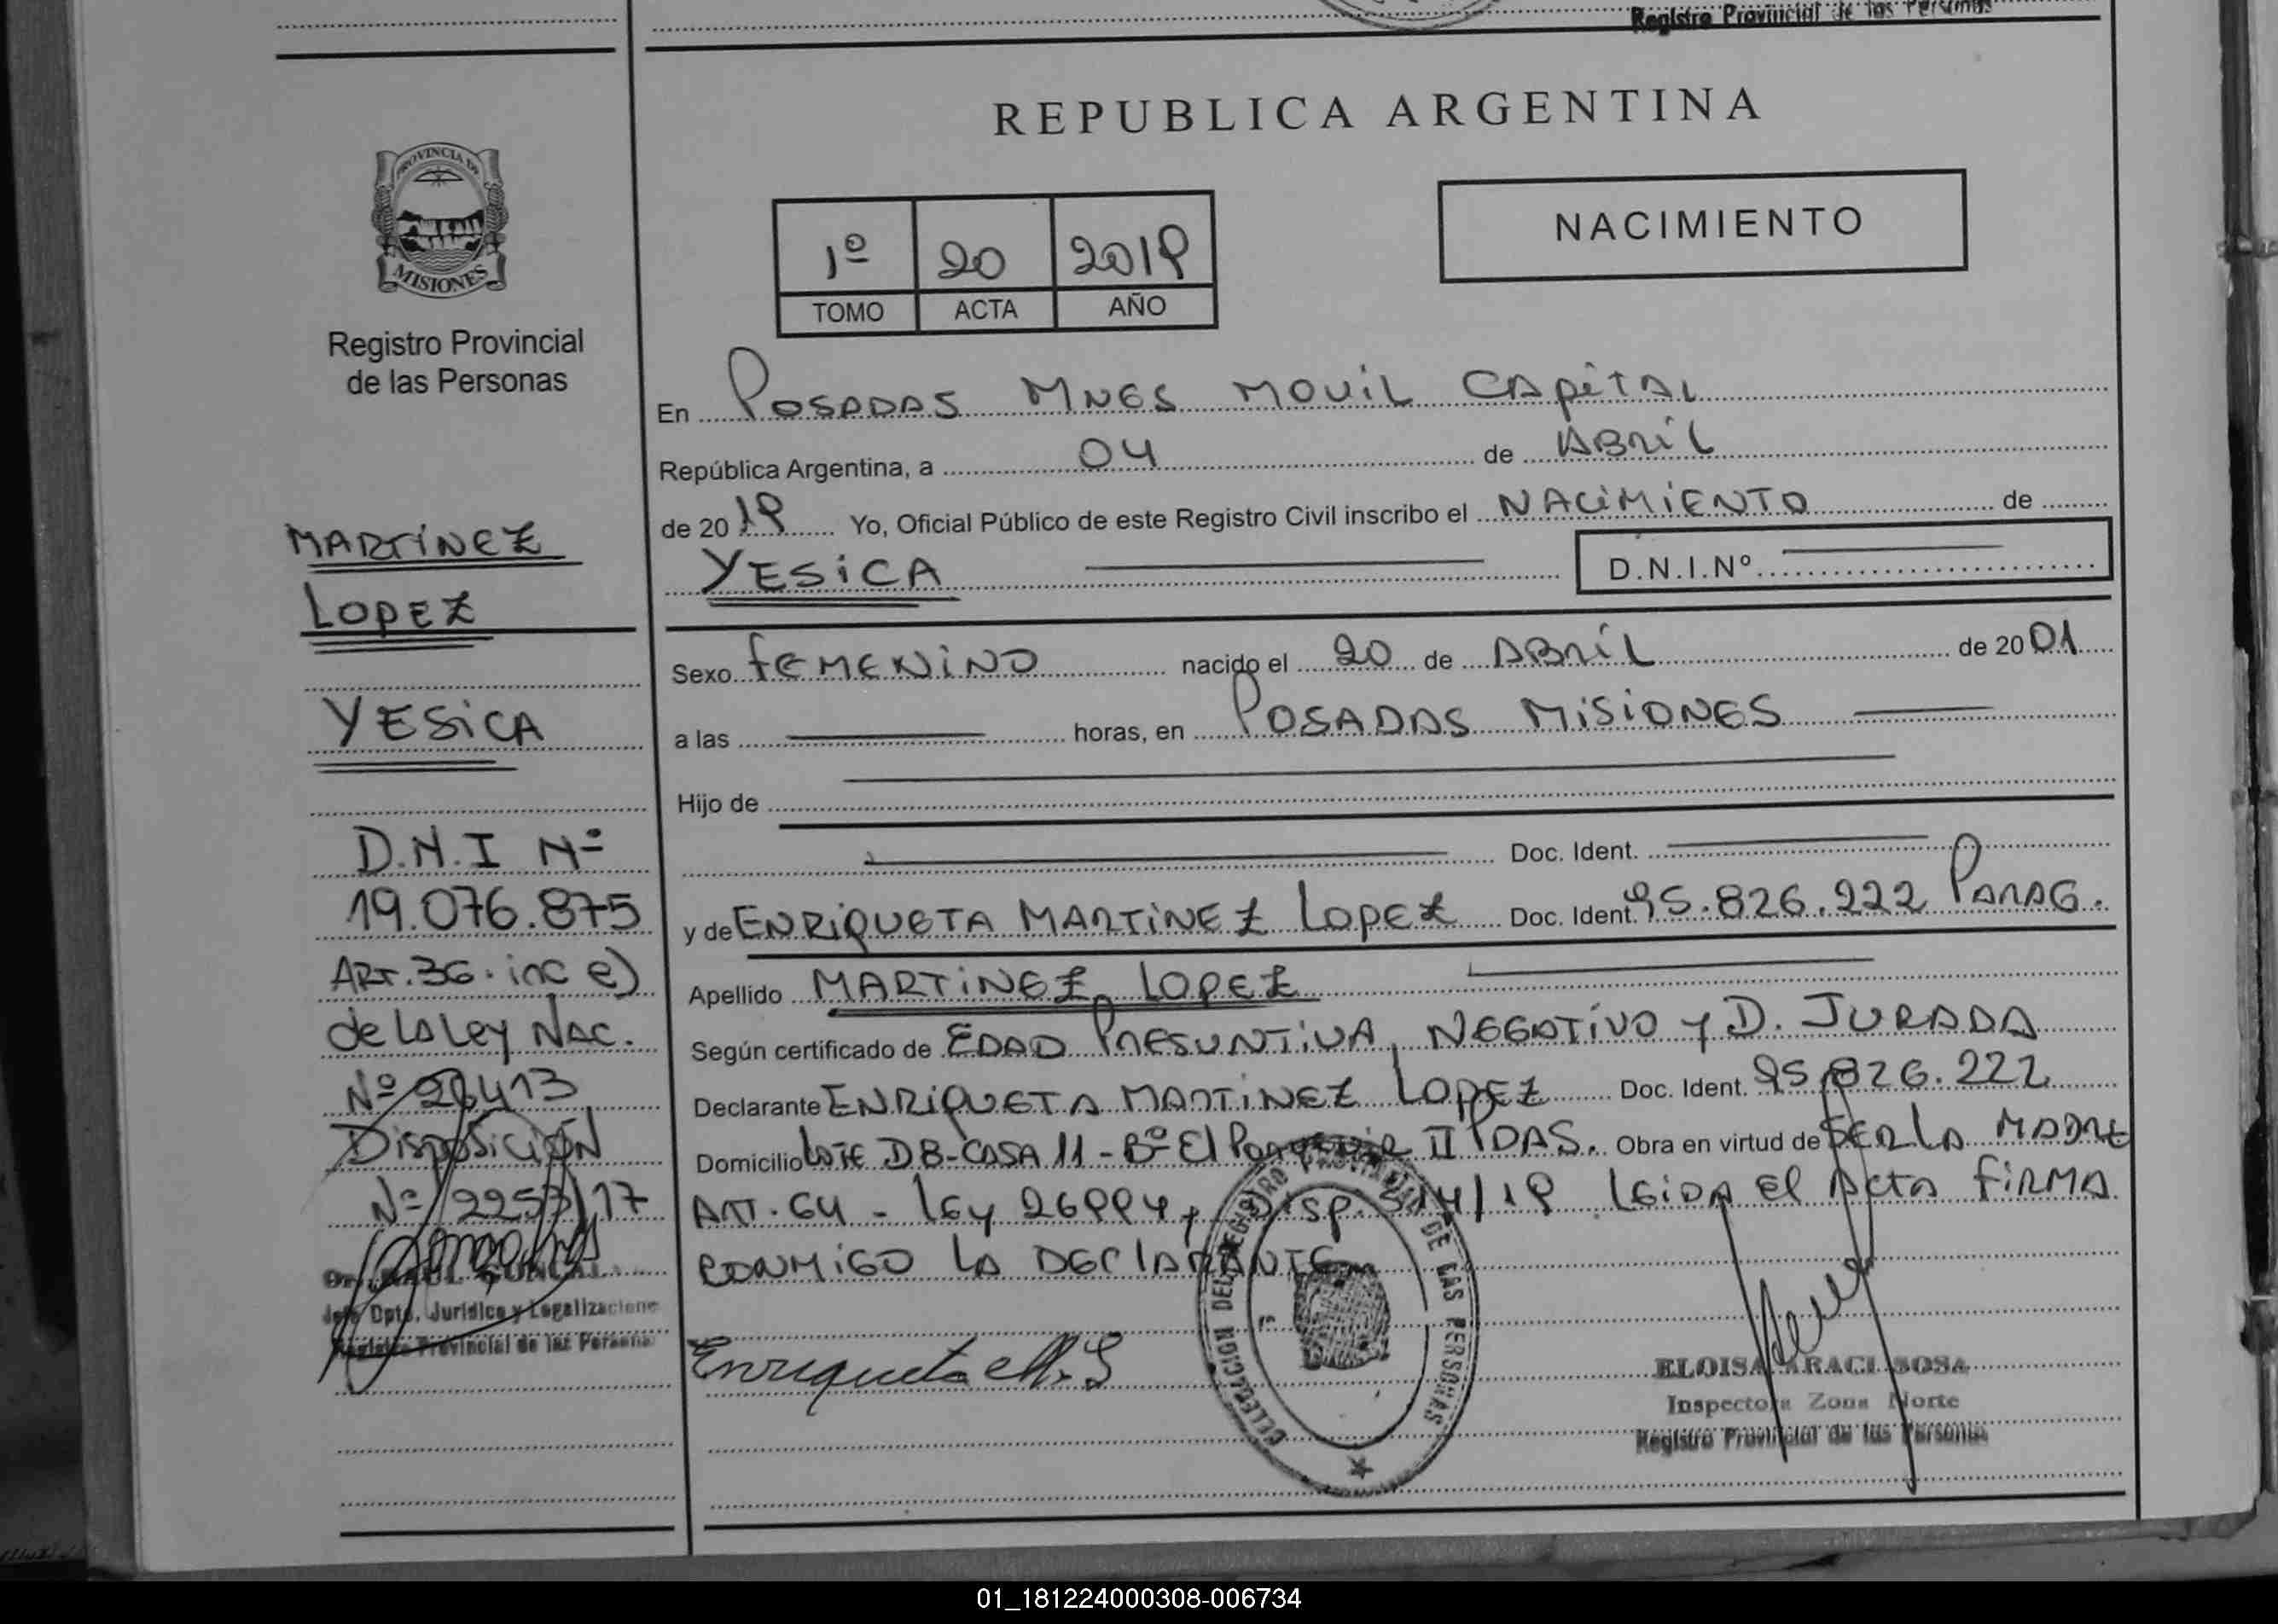 Registro Provincial de las Personas
REPUBLICA ARGENTINA
PROVINCIA DE
MISIONES
Registro Provincial
de las Personas
1º 20 2019
TOMO ACTA AÑO
NACIMIENTO
MARTINEZ
LOPEZ
YESICA
D.N.I Nº
19.076.875
ART. 36. inc e)
de la Ley NAC.
Nº 26413
Disposición
Nº 2253/17
Jefe Dpto. Jurídico y Legalizacione
Registro Provincial de las Persona
En POSADAS MNES MOVIL CAPITAL
República Argentina, a 04 de ABRIL
de 2019 Yo, Oficial Público de este Registro Civil inscribo el NACIMIENTO de
YESICA D.N.I.Nº
Sexo FEMENINO nacido el 20 de ABRIL de 2001
a las horas, en POSADAS MISIONES
Hijo de
Doc. Ident.
y de ENRIQUETA MARTINEZ LOPEZ Doc. Ident. 95.826.222 PARAG.
Apellido MARTINEZ LOPEZ
Según certificado de EDAD PRESUNTIVA, NEGATIVO y D. JURADA
Declarante ENRIQUETA MARTINEZ LOPEZ Doc. Ident. 95.826.222
Domicilio LOTE DB-CASA 11 - Bº El II PDAS. Obra en virtud de SER LA MADRE
ART. 64 - Ley 26994, DISP. /19 LEIDA El ACTA FIRMA
CONMIGO LA DECLARANTE
Enriqueta M. L
DELEGACION DEL REGISTRO PROVINCIAL DE LAS PERSONAS
ELOISA ARACI SOSA
Inspectora Zona Norte
Registro Provincial de las Personas
01_181224000308-006734